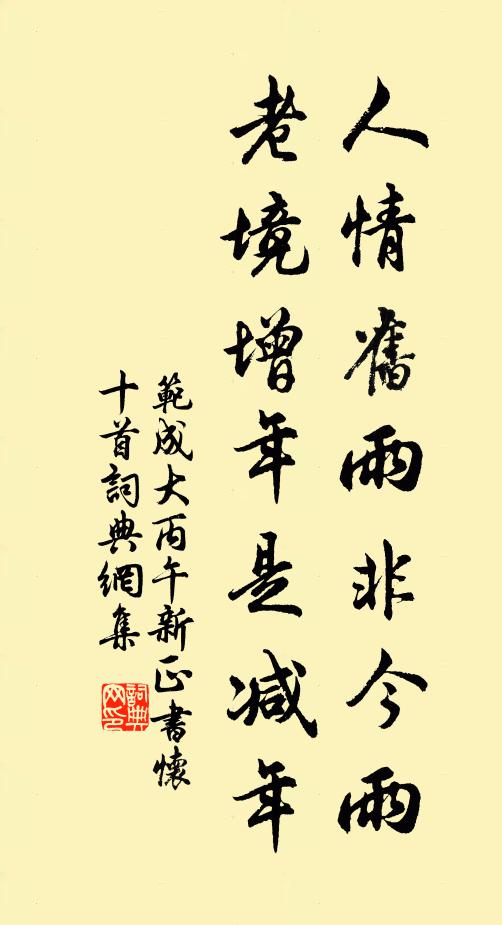 人情舊雨非今雨
老境增年是减年
範成大丙午新正書懷
十首詞典網集
詞典
网印